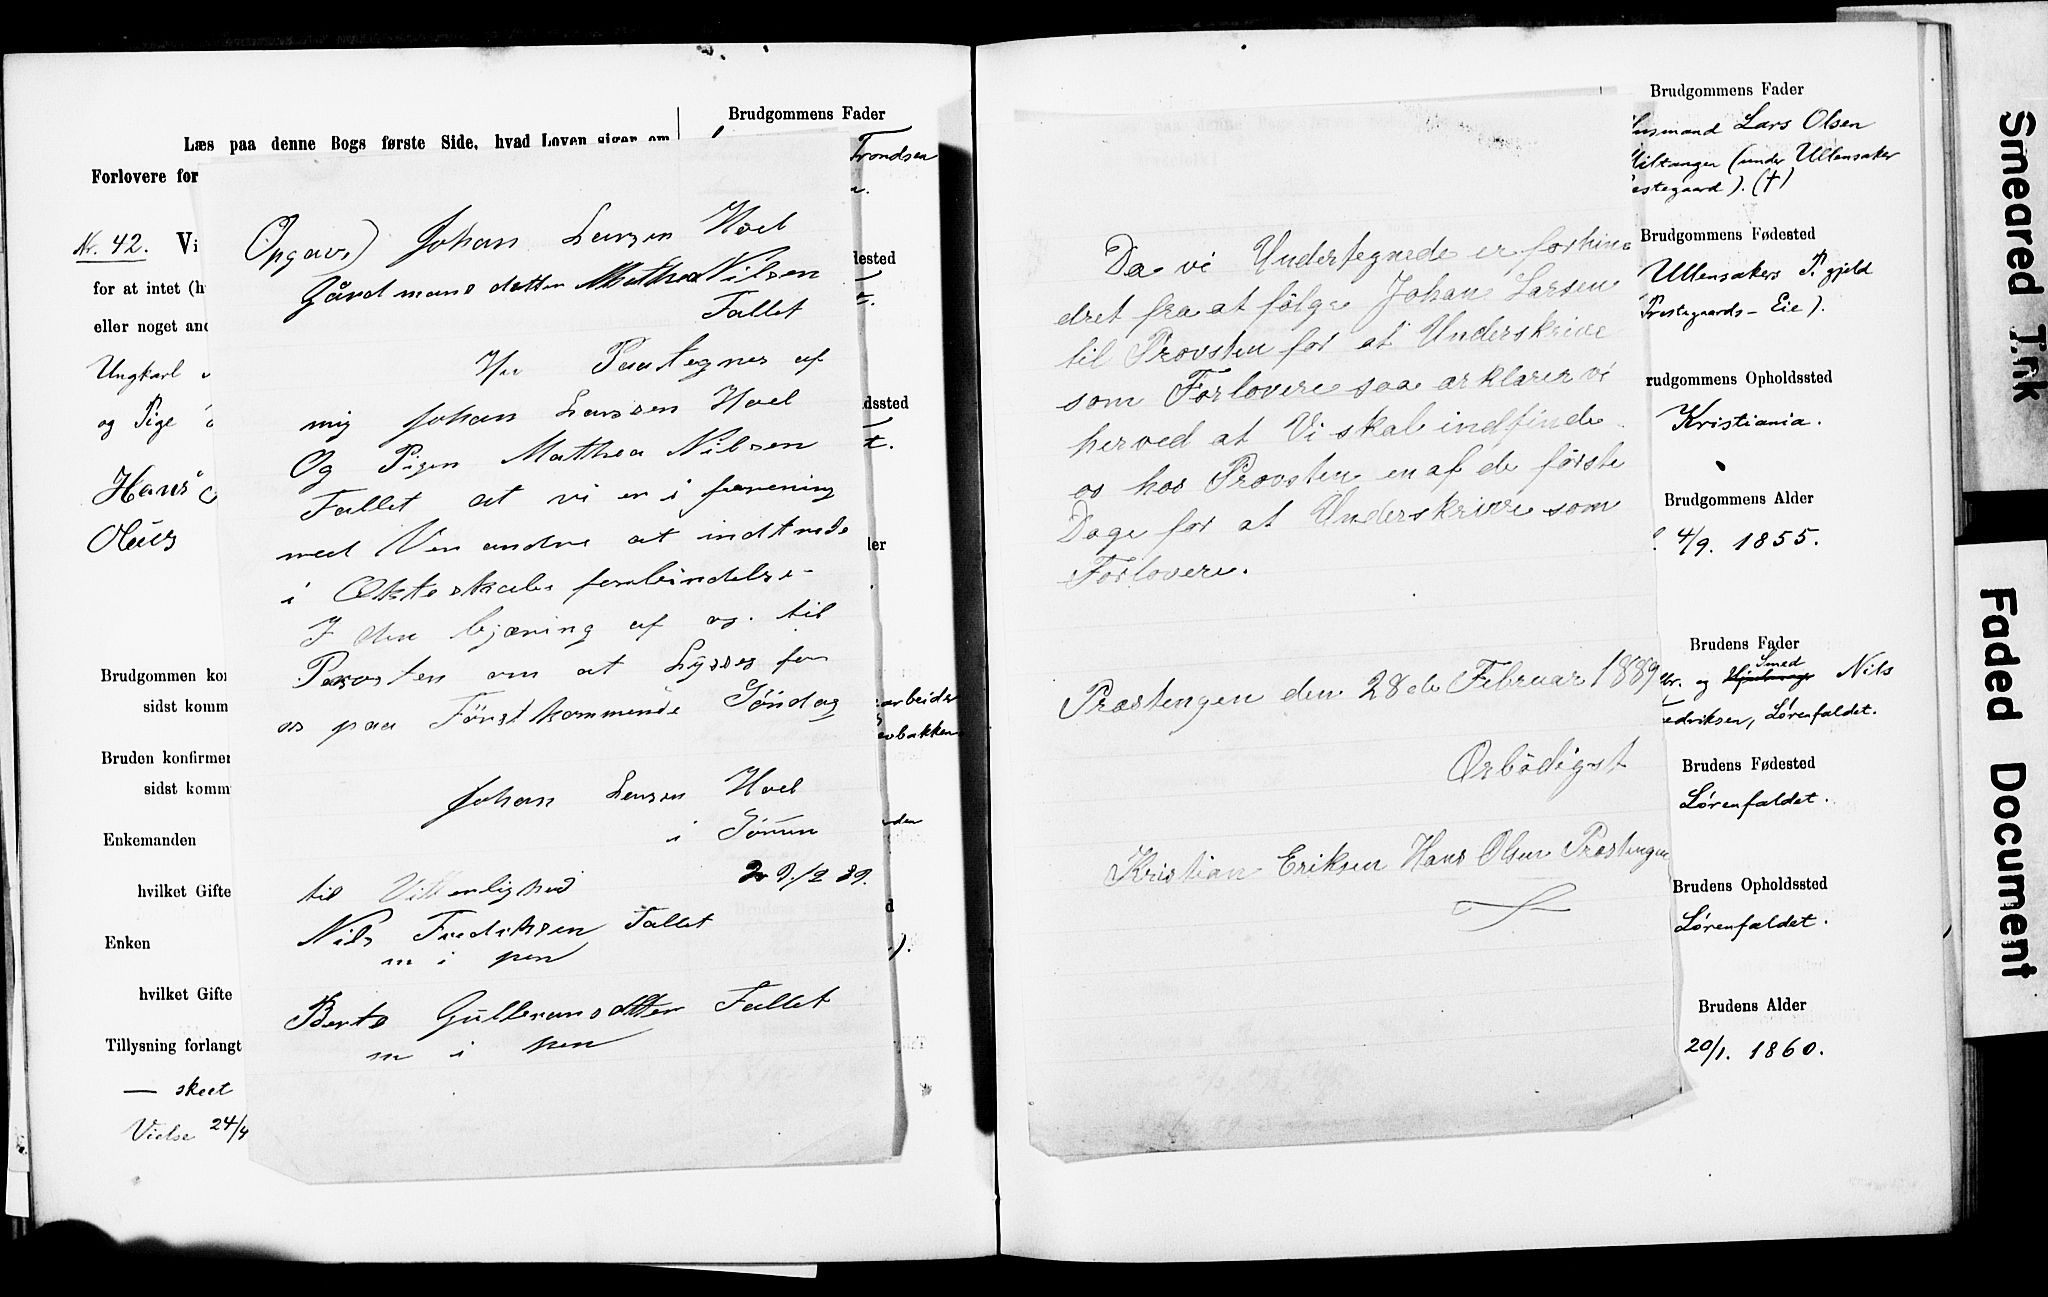 Brudgommens Fader
Læs paa denne Bogs første Side, hvad Loven siger om
Trondsen
Forlovere for
Nr. 42. Vi
for at intet
eller noget
Ungkarl
og Pige
Hans
Brudgommen
sidst komm
Bruden konfirmer
sidst komm
Enkemanden
hvilket Gifte
Enken
hvilket Gifte
Tillysning forlangt
— skeet
Vielse 24/4
Opgave) Johan Larsen Hoel
Gårdmans datter Mathea Nilsen
Fallet
Paategnes af
mig Johan Larsen Hoel
Og Pigen Matthea Nilsen
Fallet at vi er i forening
med Ver andre at indtrede
i Ektesskabs forbindelse
I den bjæring af os. til
Provsten om at Lysses for
os paa Förstkommende Söndag
Johan Larsen Hoel
i Sörum
til Vitterlighed
Nils Fredriksen Fallet
m i pen
Berte Gulbransdatter Fallet
m i pen
Da vi Undertegnede er forhin=
dret fra at følge Johan Larsen
til Provsten for at Underskrive
som Forlovere saa erklærer vi
herved at Vi skal indfinde
os hos Provsten en af de første
Dage for at Underskrive som
Forlovere.
Præstengen den 28de Februar 1889
Ærbödigst
Kristian Eriksen Hans Olsen Præstengen
Brudgommens Fader
Husmand Lars Olsen
(under Ullensaker
Prestegaard). (†)
Brudgommens Fødested
Ullensakers P. gjeld
Prestegaards-Eie).
Brudgommens Opholdssted
Kristiania.
Brudgommens Alder
4/9. 1855.
Brudens Fader
Smed
og Nils
Fredriksen, Lørenfaldet.
Brudens Fødested
Lørenfaldet.
Brudens Opholdssted
Lørenfaldet.
Brudens Alder
20/1. 1860.
Smeared Ink
Faded Document